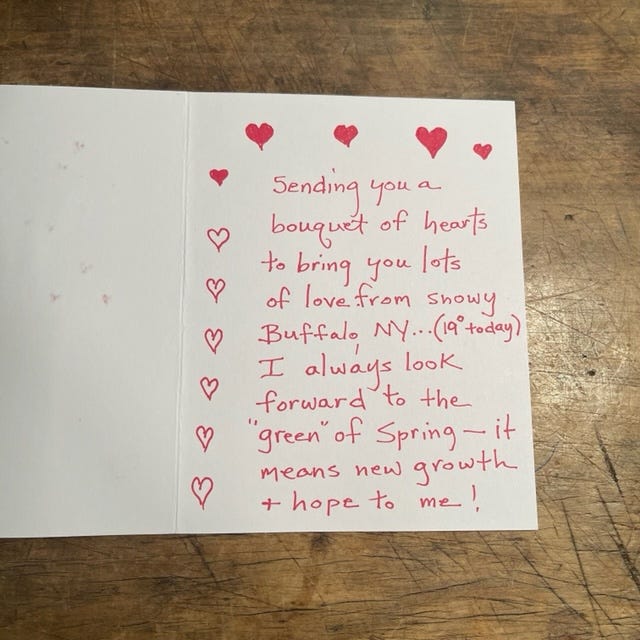 Sending you a
bouquet of hearts
to bring you lots
of love from snowy
Buffalo, NY...(19° today)
I always look
forward to the
"green" of Spring — it
means new growth
+ hope to me!